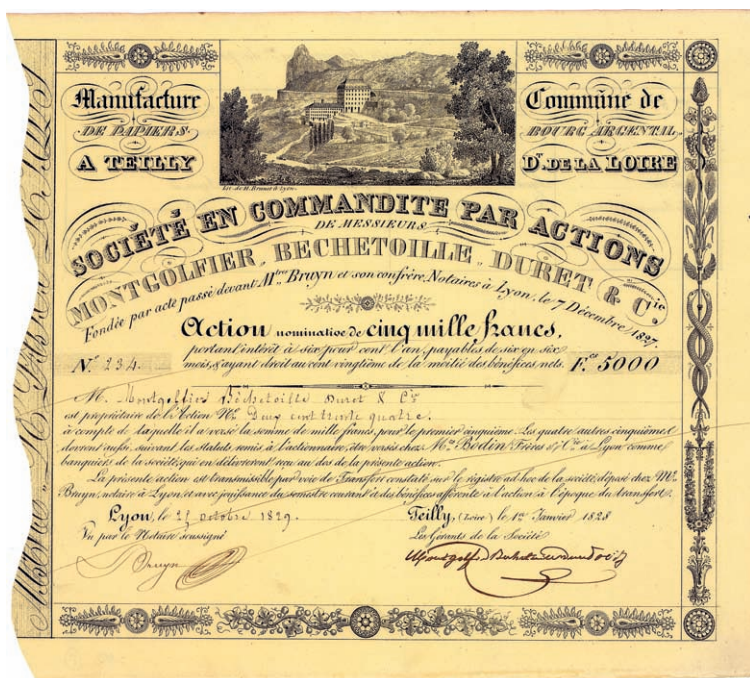 Manufacture
DE PAPIERS
A TEILLY
Commune de
BOURG ARGENTAL
Dt. DE LA LOIRE
Lit. de H. Brunet à Lyon.
SOCIÉTÉ EN COMMANDITE PAR ACTIONS
DE MESSIEURS
MONTGOLFIER, BECHETOILLE, DURET & Cie.
Fondée par acte passé devant Mtre Bruyn et son confrère, Notaires à Lyon, le 7 Décembre 1827.
Action nominative de cinq mille francs,
portant intérêt à six pour cent l'an, payables de six en six
No. 234. mois, & ayant droit au cent vingtième de la moitié des bénéfices nets. F.cs 5000
M. Montgolfier Béchetoille Duret & Ce
est propriétaire de l'Action No. Deux cent trente quatre.
à compte de laquelle il a versé la somme de mille francs, pour le premier cinquième. Les quatre autres cinquièmes
devront aussi, suivant les statuts remis à l'actionnaire, être versés chez Mrs. Bodin Frères & Cie. à Lyon comme
banquiers de la société, qui en délivreront reçu au dos de la présente action.
La présente action est transmissible par voie de Transfert constaté sur le registre ad hoc de la société, déposé chez Mtre
Bruyn, notaire à Lyon, et avec jouissance du semestre courant & des bénéfices afférents à l'action à l'époque du transfert.
Lyon, le octobre 1829.
Teilly, (Loire) le 1er Janvier 1828
Vu par le Notaire soussigné
Les Gérants de la Société
Bruyn